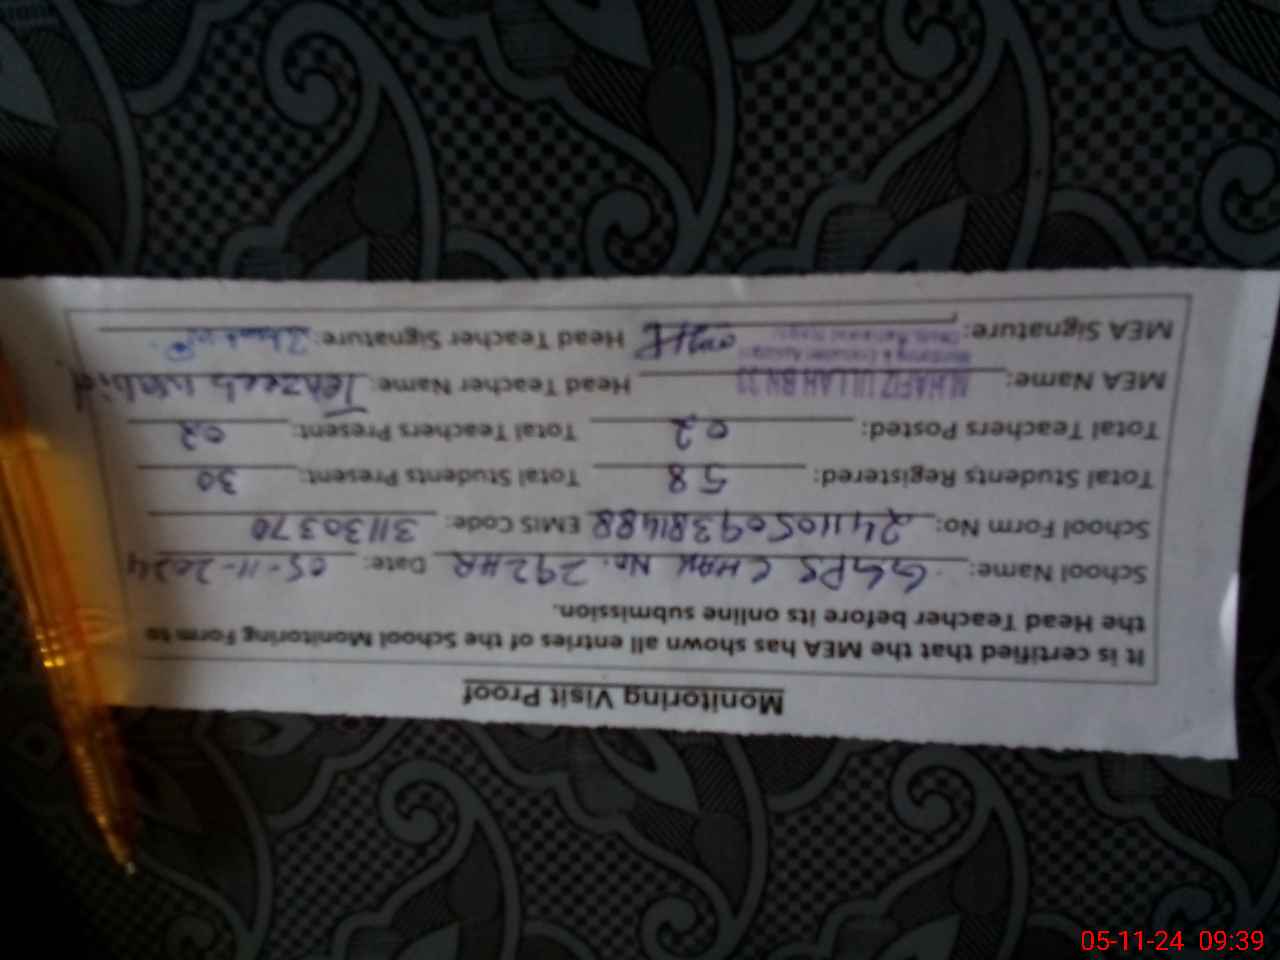 Monitoring Visit Proof
It is certified that the MEA has shown all entries of the School Monitoring Form to
the Head Teacher before its online submission.
School Name: GGPS CHAK No. 292HR Date: 05-11-2024
School Form No: 241105093811488 EMIS Code: 31130370
Total Students Registered: 58 Total Students Present: 30
Total Teachers Posted: 02 Total Teachers Present: 02
MEA Name: M.HAFIZ ULLAH Head Teacher Name: Tehzeeb
Monitoring & Evaluation Assistant
MEA Signature: Head Teacher Signature:
05-11-24 09:39